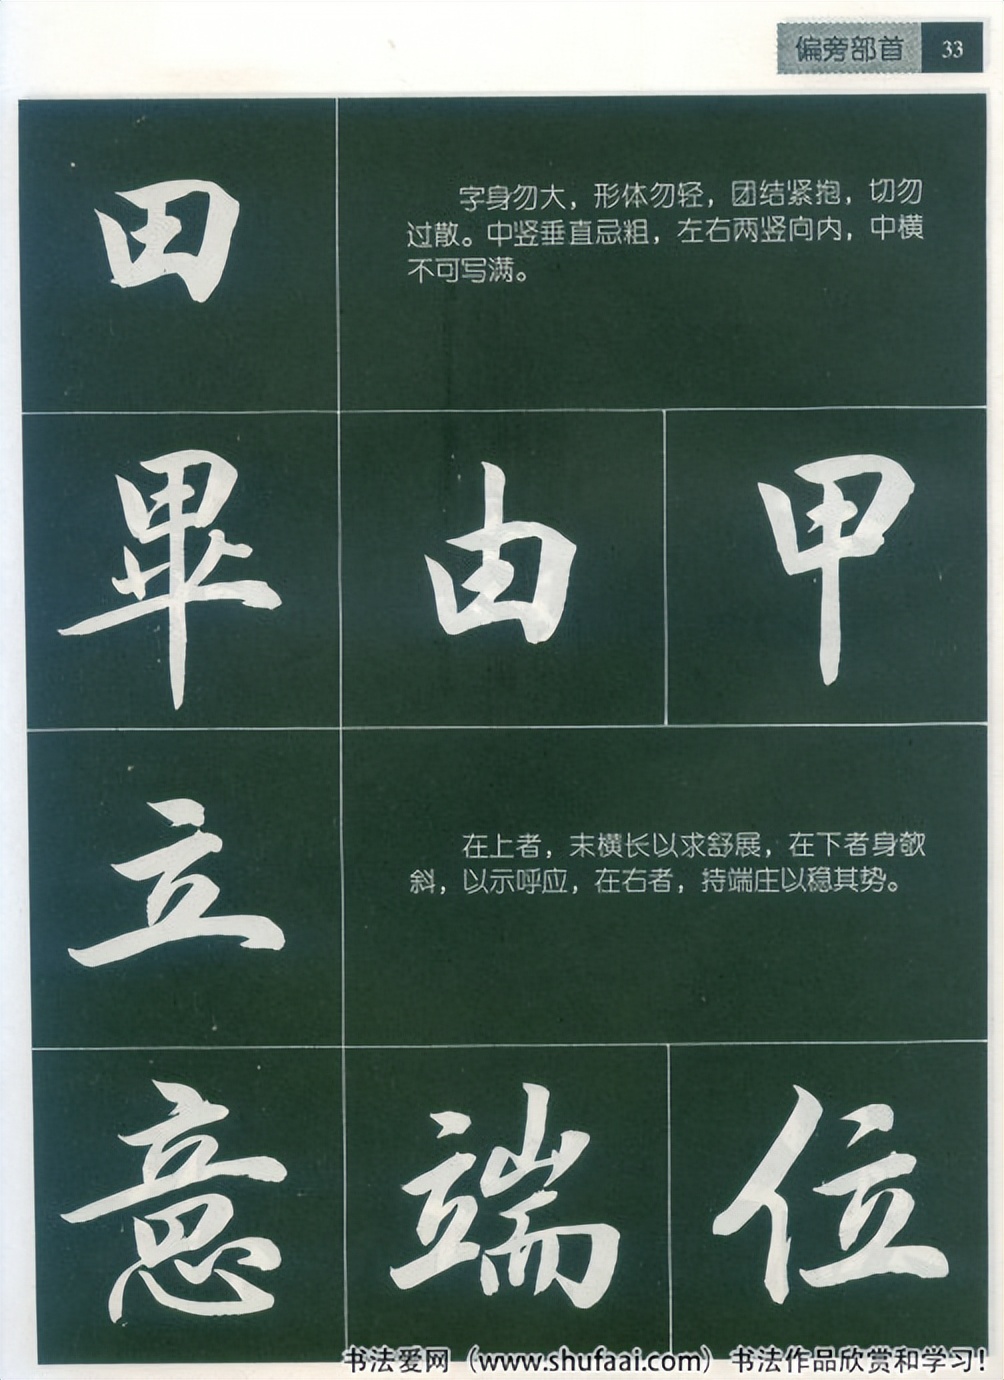 偏旁部首 33
田
字身勿大，形体勿轻，团结紧抱，切勿
过散。中竖垂直忌粗，左右两竖向内，中横
不可写满。
畢 由 甲
立
在上者，末横长以求舒展，在下者身欹
斜，以示呼应，在右者，持端庄以稳其势。
意 端 位
书法爱网（www.shufaai.com）书法作品欣赏和学习！